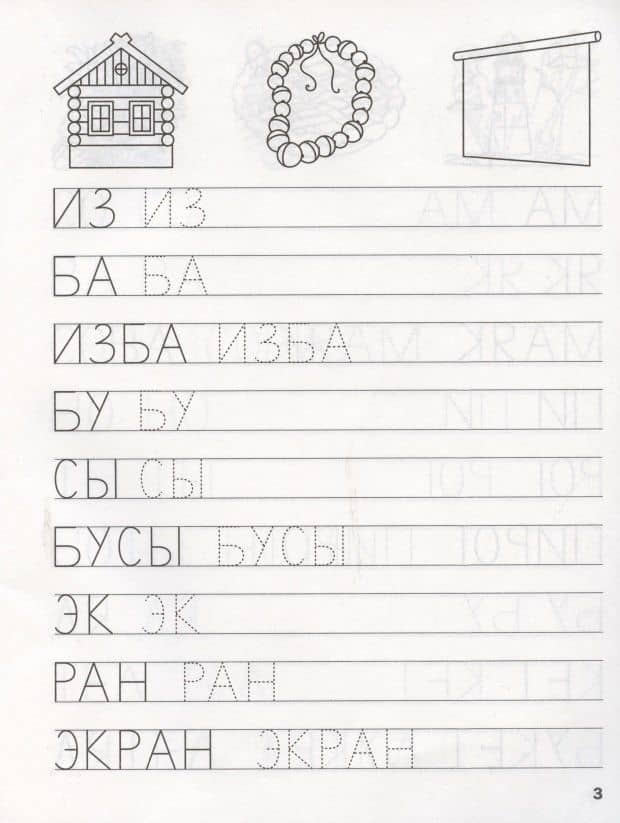 ИЗ ИЗ
БА БА
ИЗБА ИЗБА
БУ БУ
СЫ СЫ
БУСЫ БУСЫ
ЭК ЭК
РАН РАН
ЭКРАН ЭКРАН
3